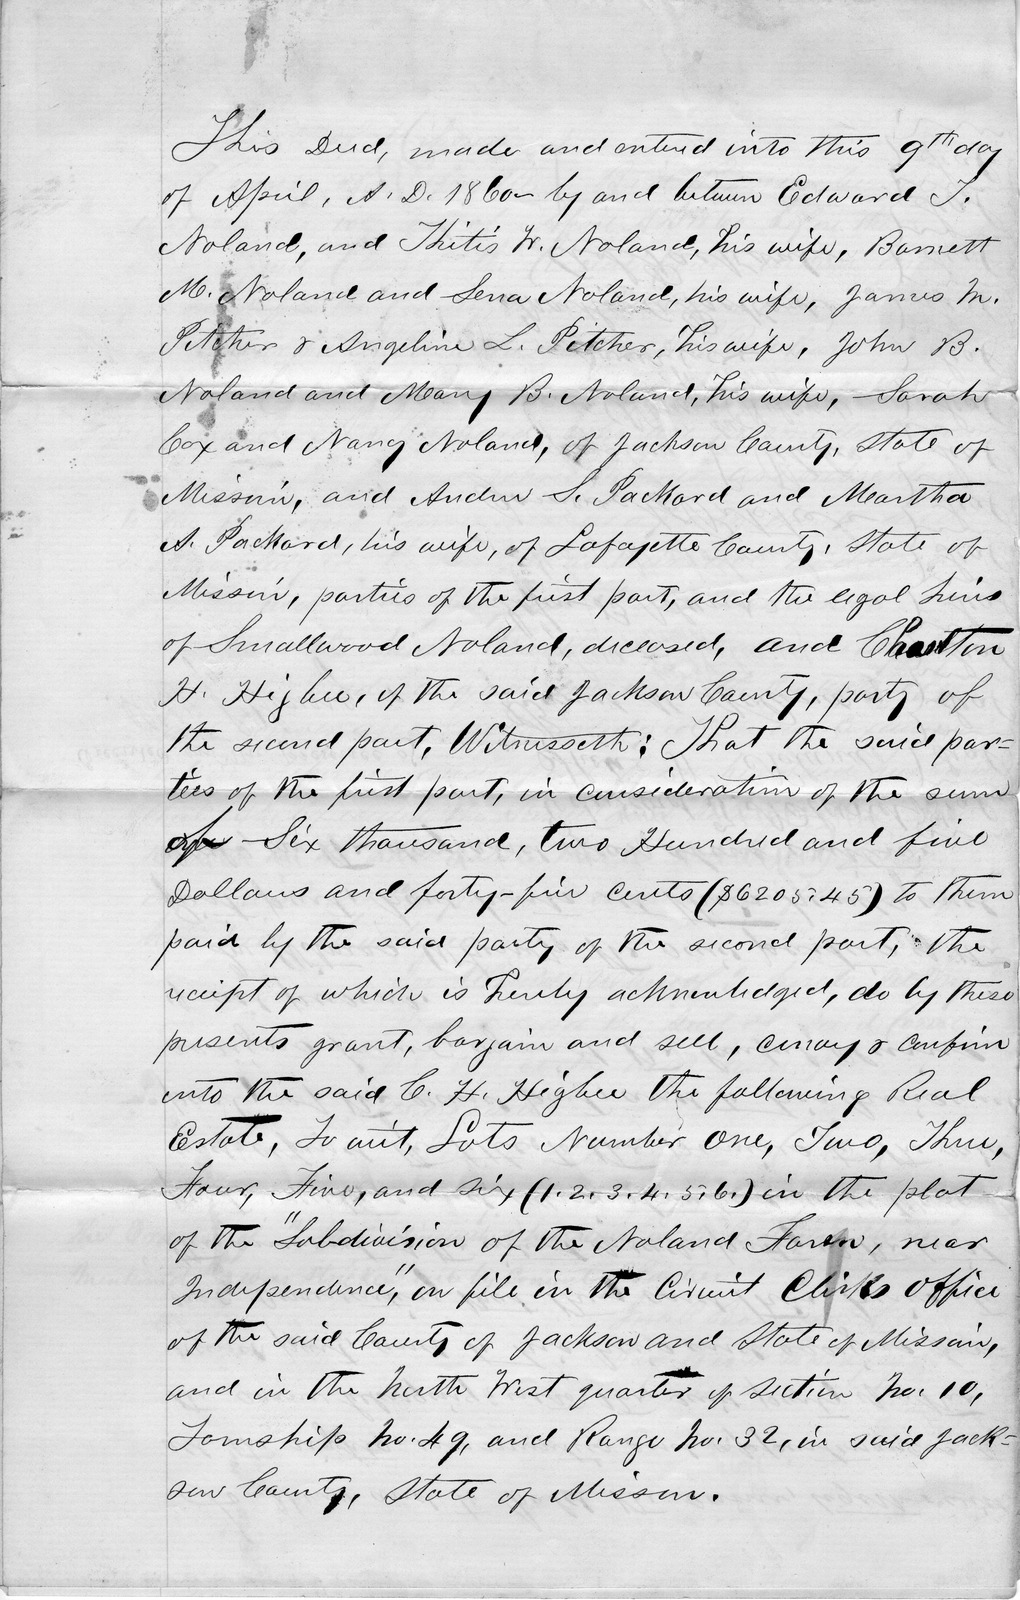 This Deed, made and entered into this 9th day
of April, A. D. 1860 by and between Edward T.
Noland, and Thitis W. Noland, his wife, Barnett
M. Noland and Sena Noland, his wife, James M.
Pitcher & Angeline L. Pitcher, his wife, John B.
Noland and Mary B. Noland, his wife, Sarah
Cox and Nancy Noland, of Jackson County, State of
Missouri, and Andrew S. Packard and Martha
A. Packard, his wife, of Lafayette County, State of
Missouri, parties of the first part, and the legal heirs
of Smallwood Noland, deceased, and
H. Higbee, of the said Jackson County, party of
the second part, Witnesseth: That the said par=
ties of the first part, in consideration of the sum
of Six thousand, two Hundred and five
Dollars and forty-five cents ($6205.45) to them
paid by the said party of the second part, the
receipt of which is hereby acknowledged, do by these
presents grant, bargain and sell, convey & confirm
unto the said C. H. Higbee the following Real
Estate, To wit, Lots Number One, Two, Three,
Four, Five, and Six (1. 2. 3. 4. 5. 6.) in the plat
of the "Subdivision of the Noland Farm, near
Independence", on file in the Circuit Clerks office
of the said County of Jackson and State of Missouri,
and in the North West quarter of Section No. 10,
Township No. 49, and Range No. 32, in said Jack=
son County, State of Missouri.